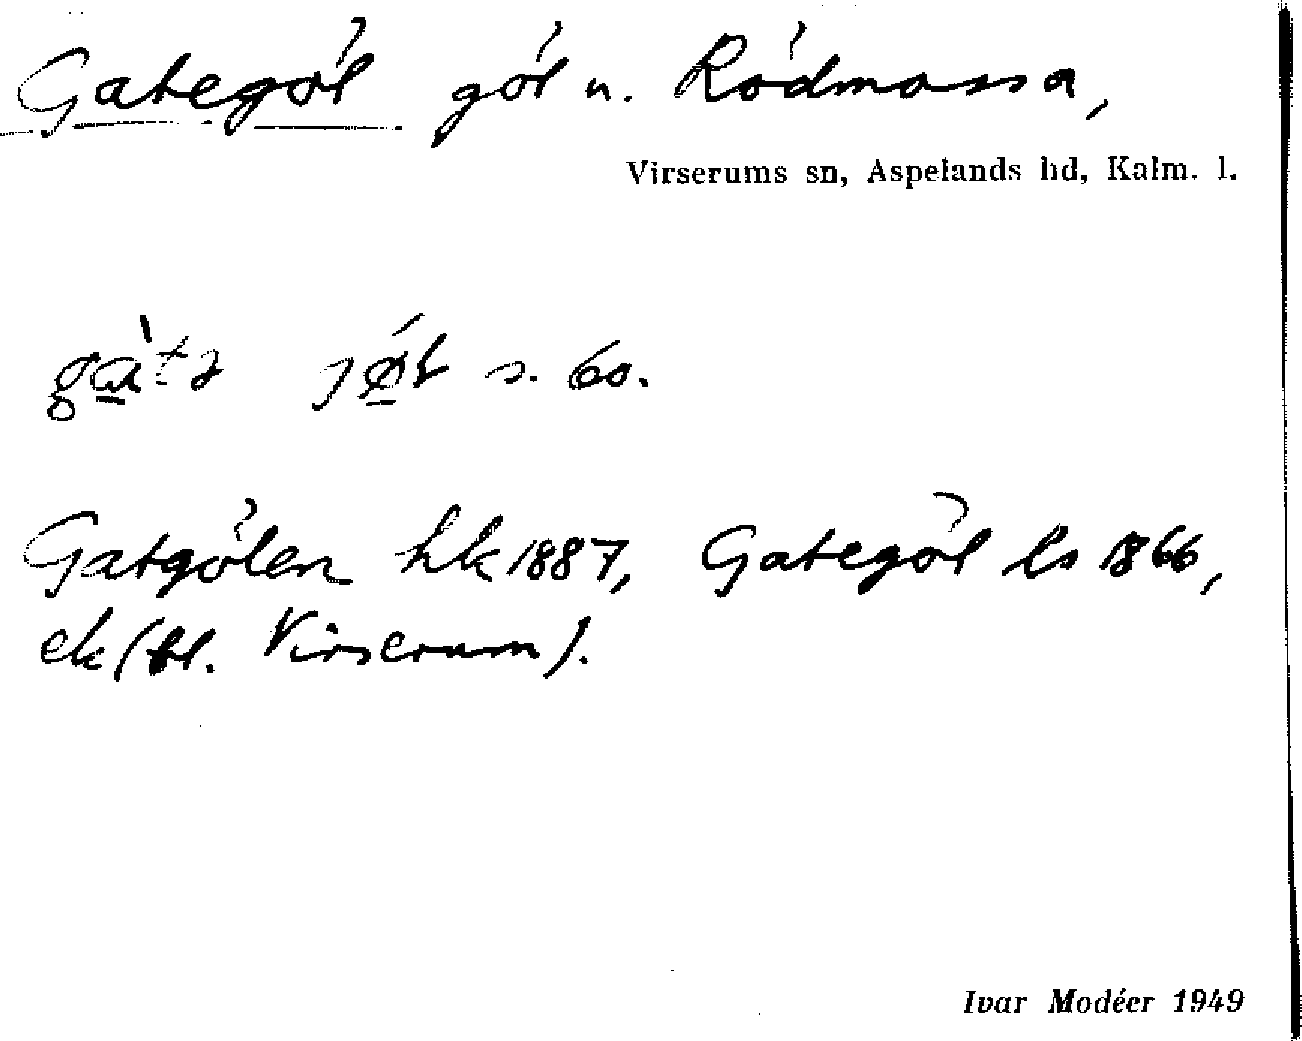 Gategöl göl u. Rödmossa,
Virserums sn, Aspelands hd, Kalm. l.
s. 60.
Gatgölen hk 1887, Gategöl ls 1866,
ek (bl. Virserum).
Ivar Modéer 1949